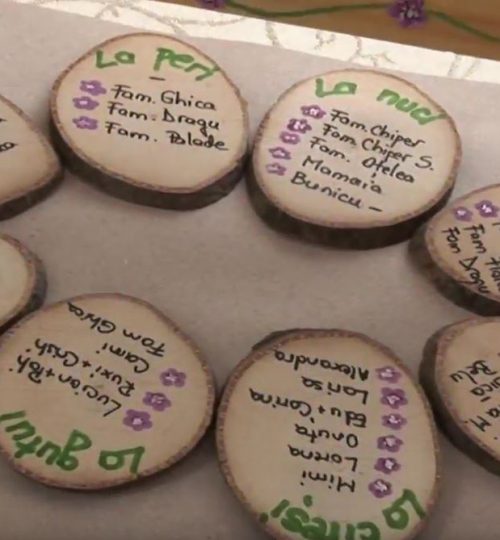 La peri
Fam. Ghica
Fam. Dragu
Fam. Blade
La nuci
Fam. Chiper
Fam. Chiper S.
Fam. Oțelea
Mamaia
Bunicu
Fam
Fam Dragu
La gutui
Lucian+Pоli
Ruxi+Crish
Cami
Fam Ghica
La cireși
Mimi
Lorena
Onuța
Edu+Corina
Larisa
Alexandra